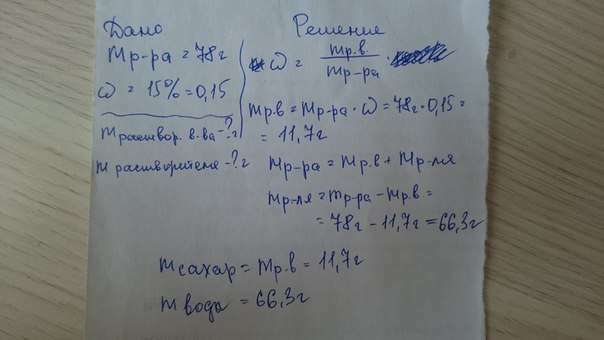 Дано
mр-ра = 78г
ω = 15% = 0,15
mраствор. в-ва - ? г
m растворителя - ? г
Решение
ω = mр.в. / mр-ра
mр.в = mр-ра · ω = 78г · 0,15 =
= 11,7г
mр-ра = mр.в + mр-ля
mр-ля = mр-ра - mр.в =
= 78г - 11,7г = 66,3г
mсахар = mр.в = 11,7г
mвода = 66,3г